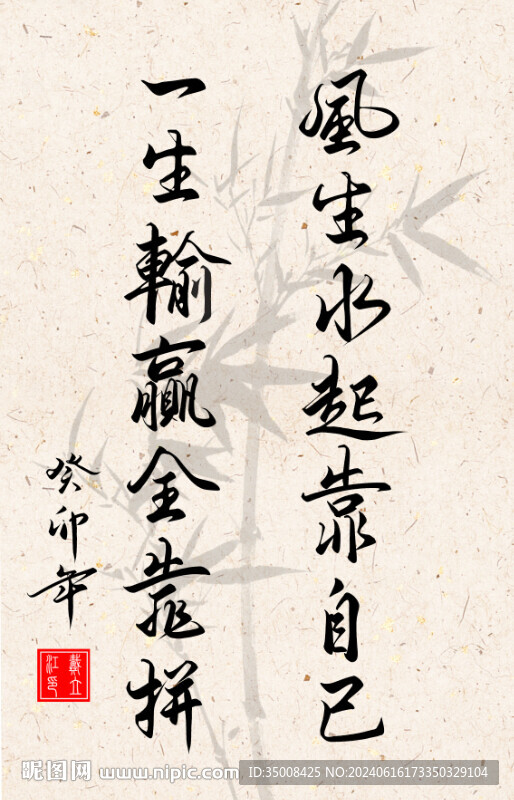 風生水起靠自己
一生輸贏全靠拼
癸卯年
戴立江印
昵图网 www.nipic.com
ID:35008425 NO:20240616173350329104